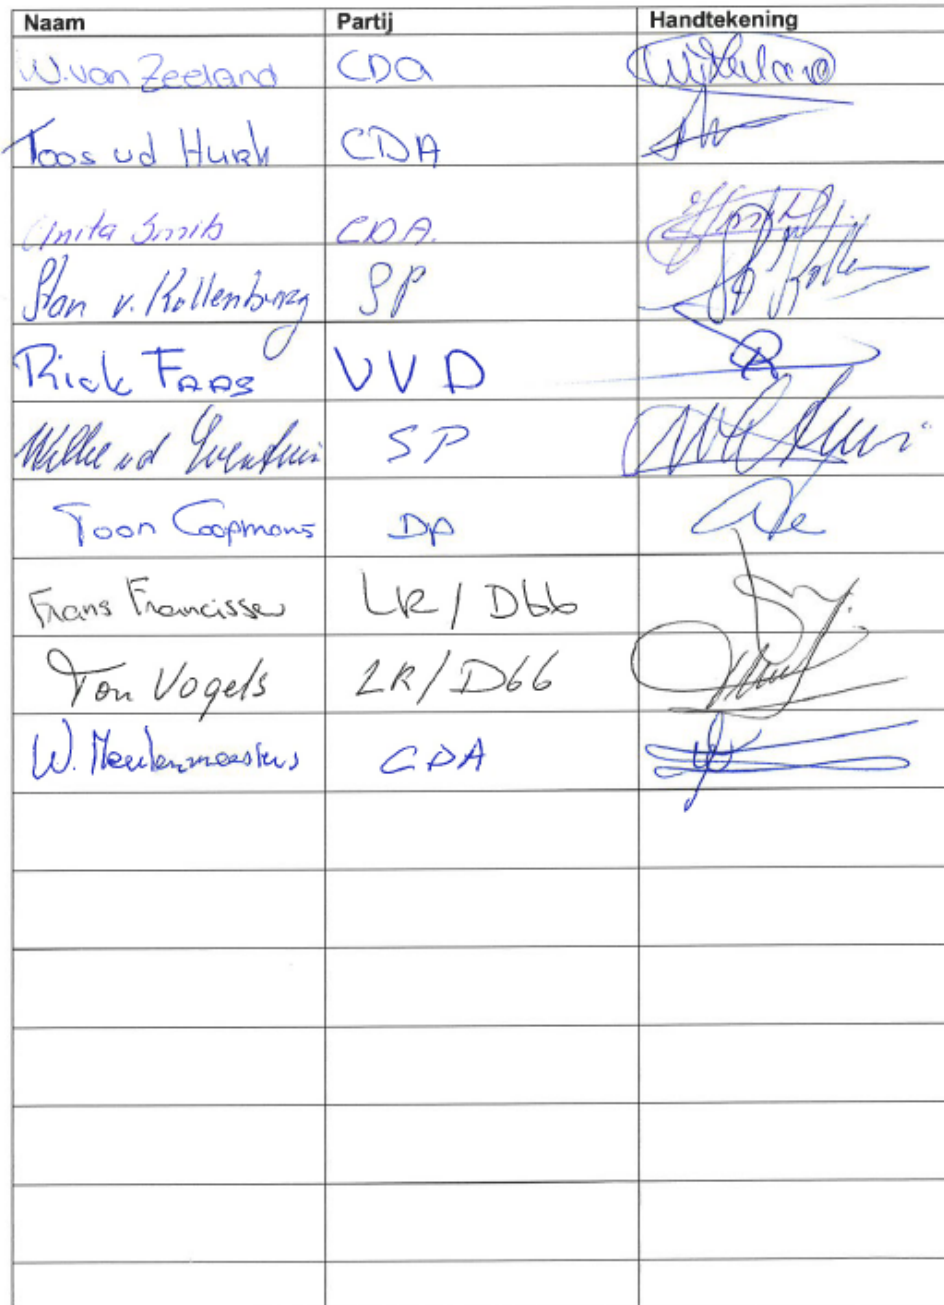 Naam Partij Handtekening
W. van Zeeland CDA
Toos vd Hurk CDA
Anita Smits CDA.
Stan v. Kollenburg SP
Rick Faas VVD
Willie vd SP
Toon Coopmans DP
Frans Francissen LR / D66
Ton Vogels LR / D66
W. Meulenmeesters CDA